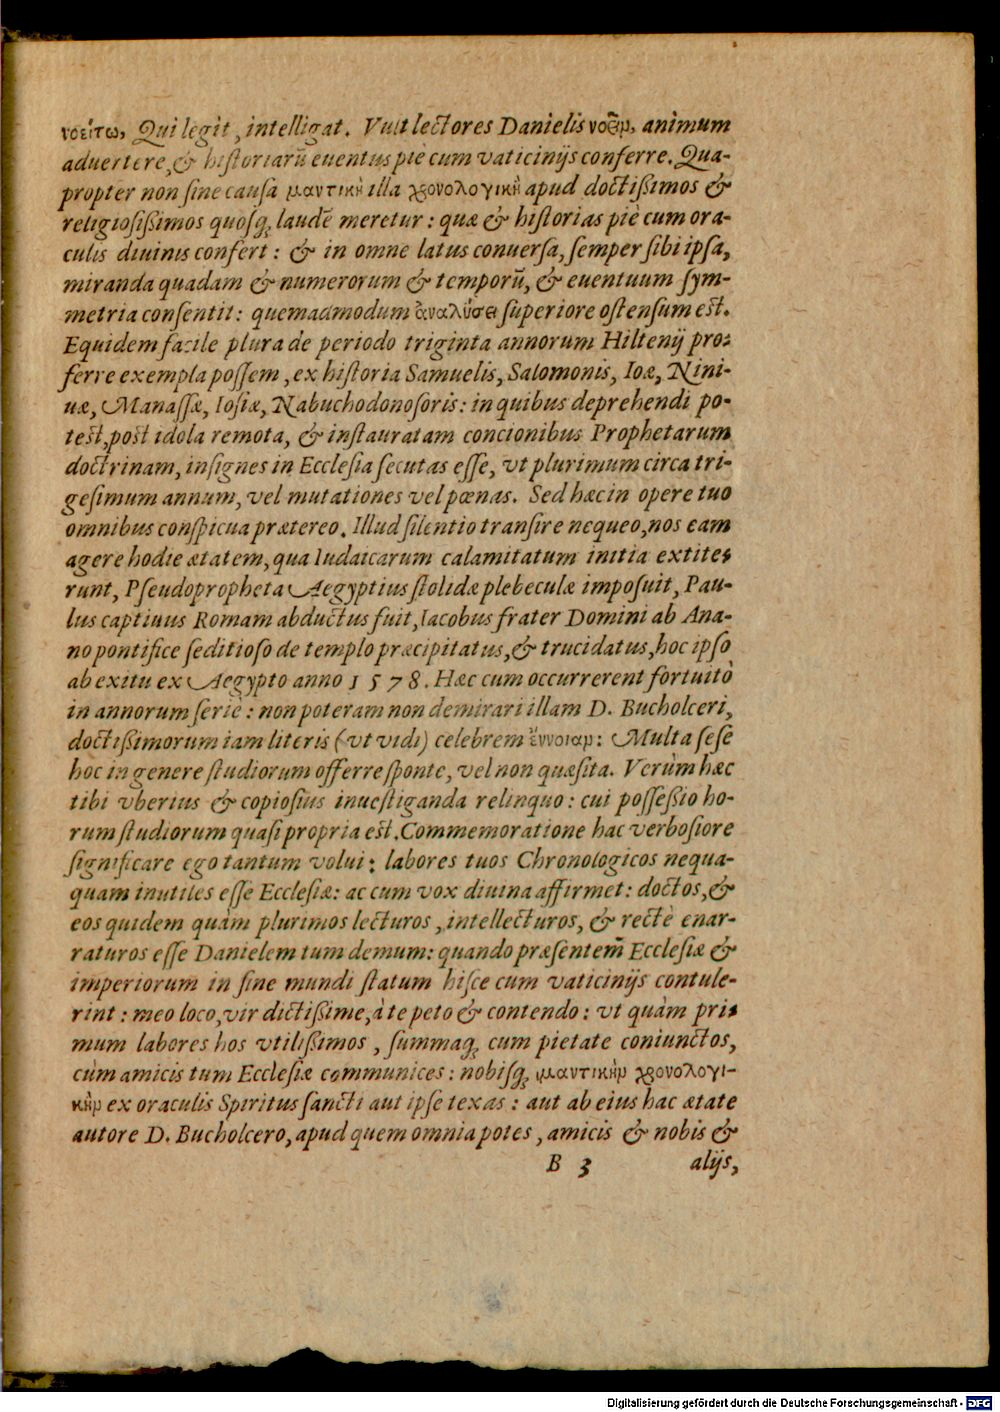 νοείτω, Qui legit, intelligat. Vult lectores Danielis νοεῖν, animum
aduertere, & historiarū euentus piè cum vaticinijs conferre. Qua-
propter non sine causa μαντικὴ illa χρονολογικὴ apud doctißimos &
religiosißimos quosq; laudē meretur: quæ & historias piè cum ora-
culis diuinis confert: & in omne latus conuersa, semper sibi ipsa,
miranda quadam & numerorum & temporū, & euentuum sym-
metria consentit: quemadmodum ἀναλύσει superiore ostensum est.
Equidem facile plura de periodo triginta annorum Hiltenij pro-
ferre exempla possem, ex historia Samuelis, Salomonis, Ioæ, Nini-
uæ, Manassæ, Iosiæ, Nabuchodonosoris: in quibus deprehendi po-
test, post idola remota, & instauratam concionibus Prophetarum
doctrinam, insignes in Ecclesia secutas esse, vt plurimum circa tri-
gesimum annum, vel mutationes vel pœnas. Sed hæc in opere tuo
omnibus conspicua prætereo. Illud silentio transire nequeo, nos eam
agere hodie ætatem, qua Iudaicarum calamitatum initia extite-
runt, Pseudopropheta Aegyptius stolidæ plebeculæ imposuit, Pau-
lus captiuus Romam abductus fuit, Iacobus frater Domini ab Ana-
no pontifice seditioso de templo præcipitatus, & trucidatus, hoc ipso
ab exitu ex Aegypto anno 1578. Hæc cum occurrerent fortuitò
in annorum serie: non poteram non demirari illam D. Bucholceri,
doctißimorum iam literis (vt vidi) celebrem ἔννοιαν: Multa sese
hoc in genere studiorum offerre sponte, vel non quæsita. Verùm hæc
tibi vberius & copiosius inuestiganda relinquo: cui possessio ho-
rum studiorum quasi propria est. Commemoratione hac verbosiore
significare ego tantum volui: labores tuos Chronologicos nequa-
quam inutiles esse Ecclesiæ: ac cum vox diuina affirmet: doctos, &
eos quidem quàm plurimos lecturos, intellecturos, & rectè enar-
raturos esse Danielem tum demum: quando præsentem̄ Ecclesiæ &
imperiorum in fine mundi statum hisce cum vaticinijs contule-
rint: meo loco, vir dictißime, à te peto & contendo: vt quàm pri-
mum labores hos vtilißimos, summaq; cum pietate coniunctos,
cùm amicis tum Ecclesiæ communices: nobisq; μαντικὴν χρονολογι-
κὴν ex oraculis Spiritus sancti aut ipse texas: aut ab eius hac ætate
autore D. Bucholcero, apud quem omnia potes, amicis & nobis &
B 3 alijs,
Digitalisierung gefördert durch die Deutsche Forschungsgemeinschaft - DFG